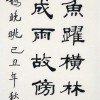 魚躍橫林
成雨故傍
楊晚眺己丑年秋